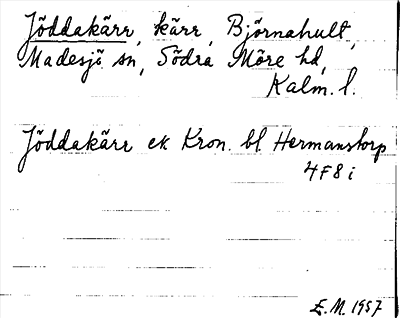 Jöddakärr, kärr, Björnahult,
Madesjö sn, Södra Möre hd,
Kalm. l.
Jöddakärr ek Kron. bl. Hermanstorp
4F8i
E.M. 1957